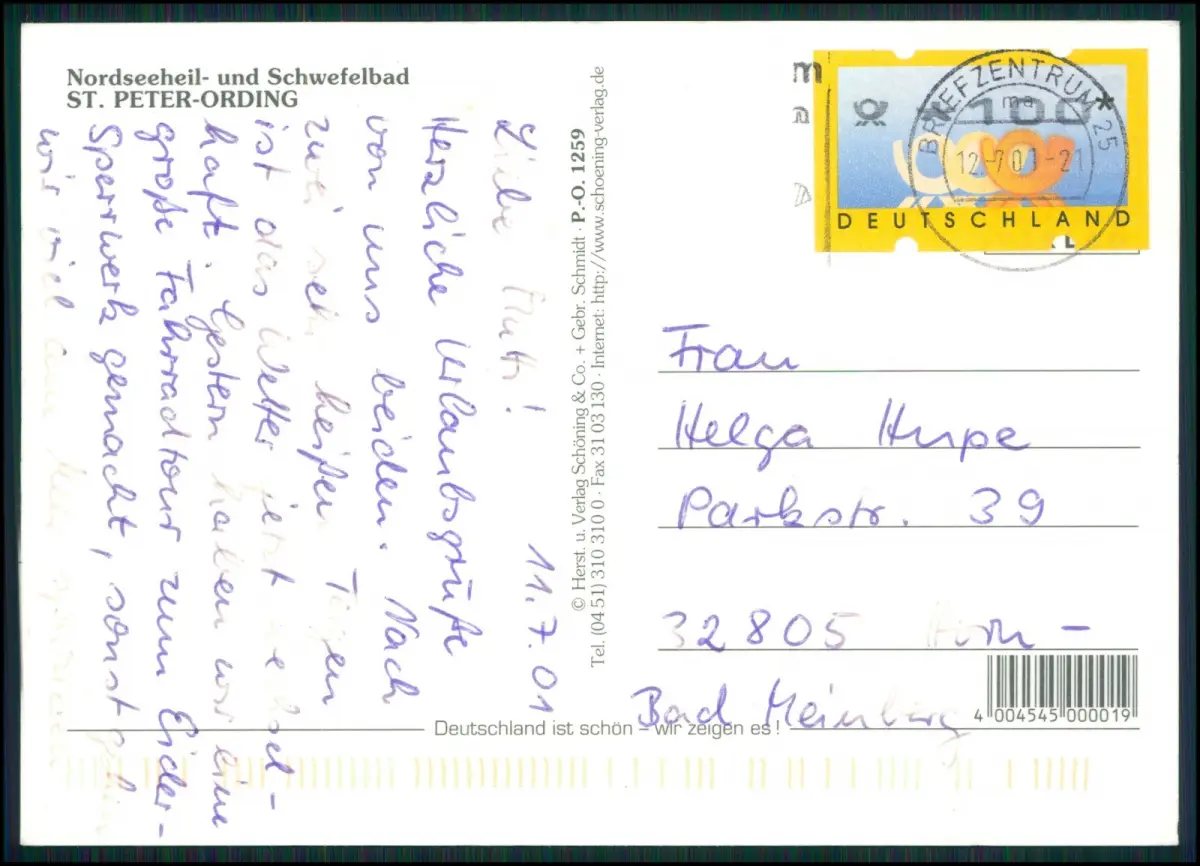 Nordseeheil- und Schwefelbad
ST. PETER-ORDING
11.7.01
Liebe Mutti!
Herzliche Urlaubsgrüße
von uns beiden. Nach
zwei sehr heißen Tagen
ist das Wetter jetzt wechsel-
haft. Gestern haben wir eine
große Fahrradtour zum Eider-
Sperrwerk gemacht, sonst gehen
wir viel am
© Herst. u. Verlag Schöning & Co. + Gebr. Schmidt · P.-O. 1259
Tel. (04 51) 310 310 0 · Fax 31 03 130 · Internet: http://www.schoening-verlag.de
BRIEFZENTRUM 25
ma
12-7.01-21
*100
DEUTSCHLAND
Frau
Helga Hupe
Parkstr. 39
32805 Horn -
Bad Meinberg
4 004545 000019
Deutschland ist schön – wir zeigen es!